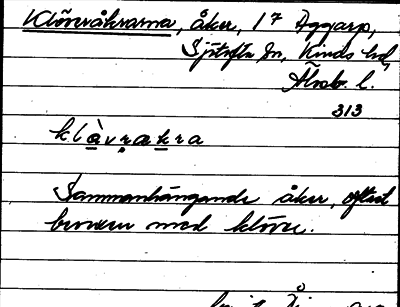 Klöveråkrarna, åker, 1 7 Aggarp,
Sjötofta sn, Kinds hd,
Älvsb. l.
313
klàvrakra
Sammanhängande åker, oftast
bevuxen med klöver.